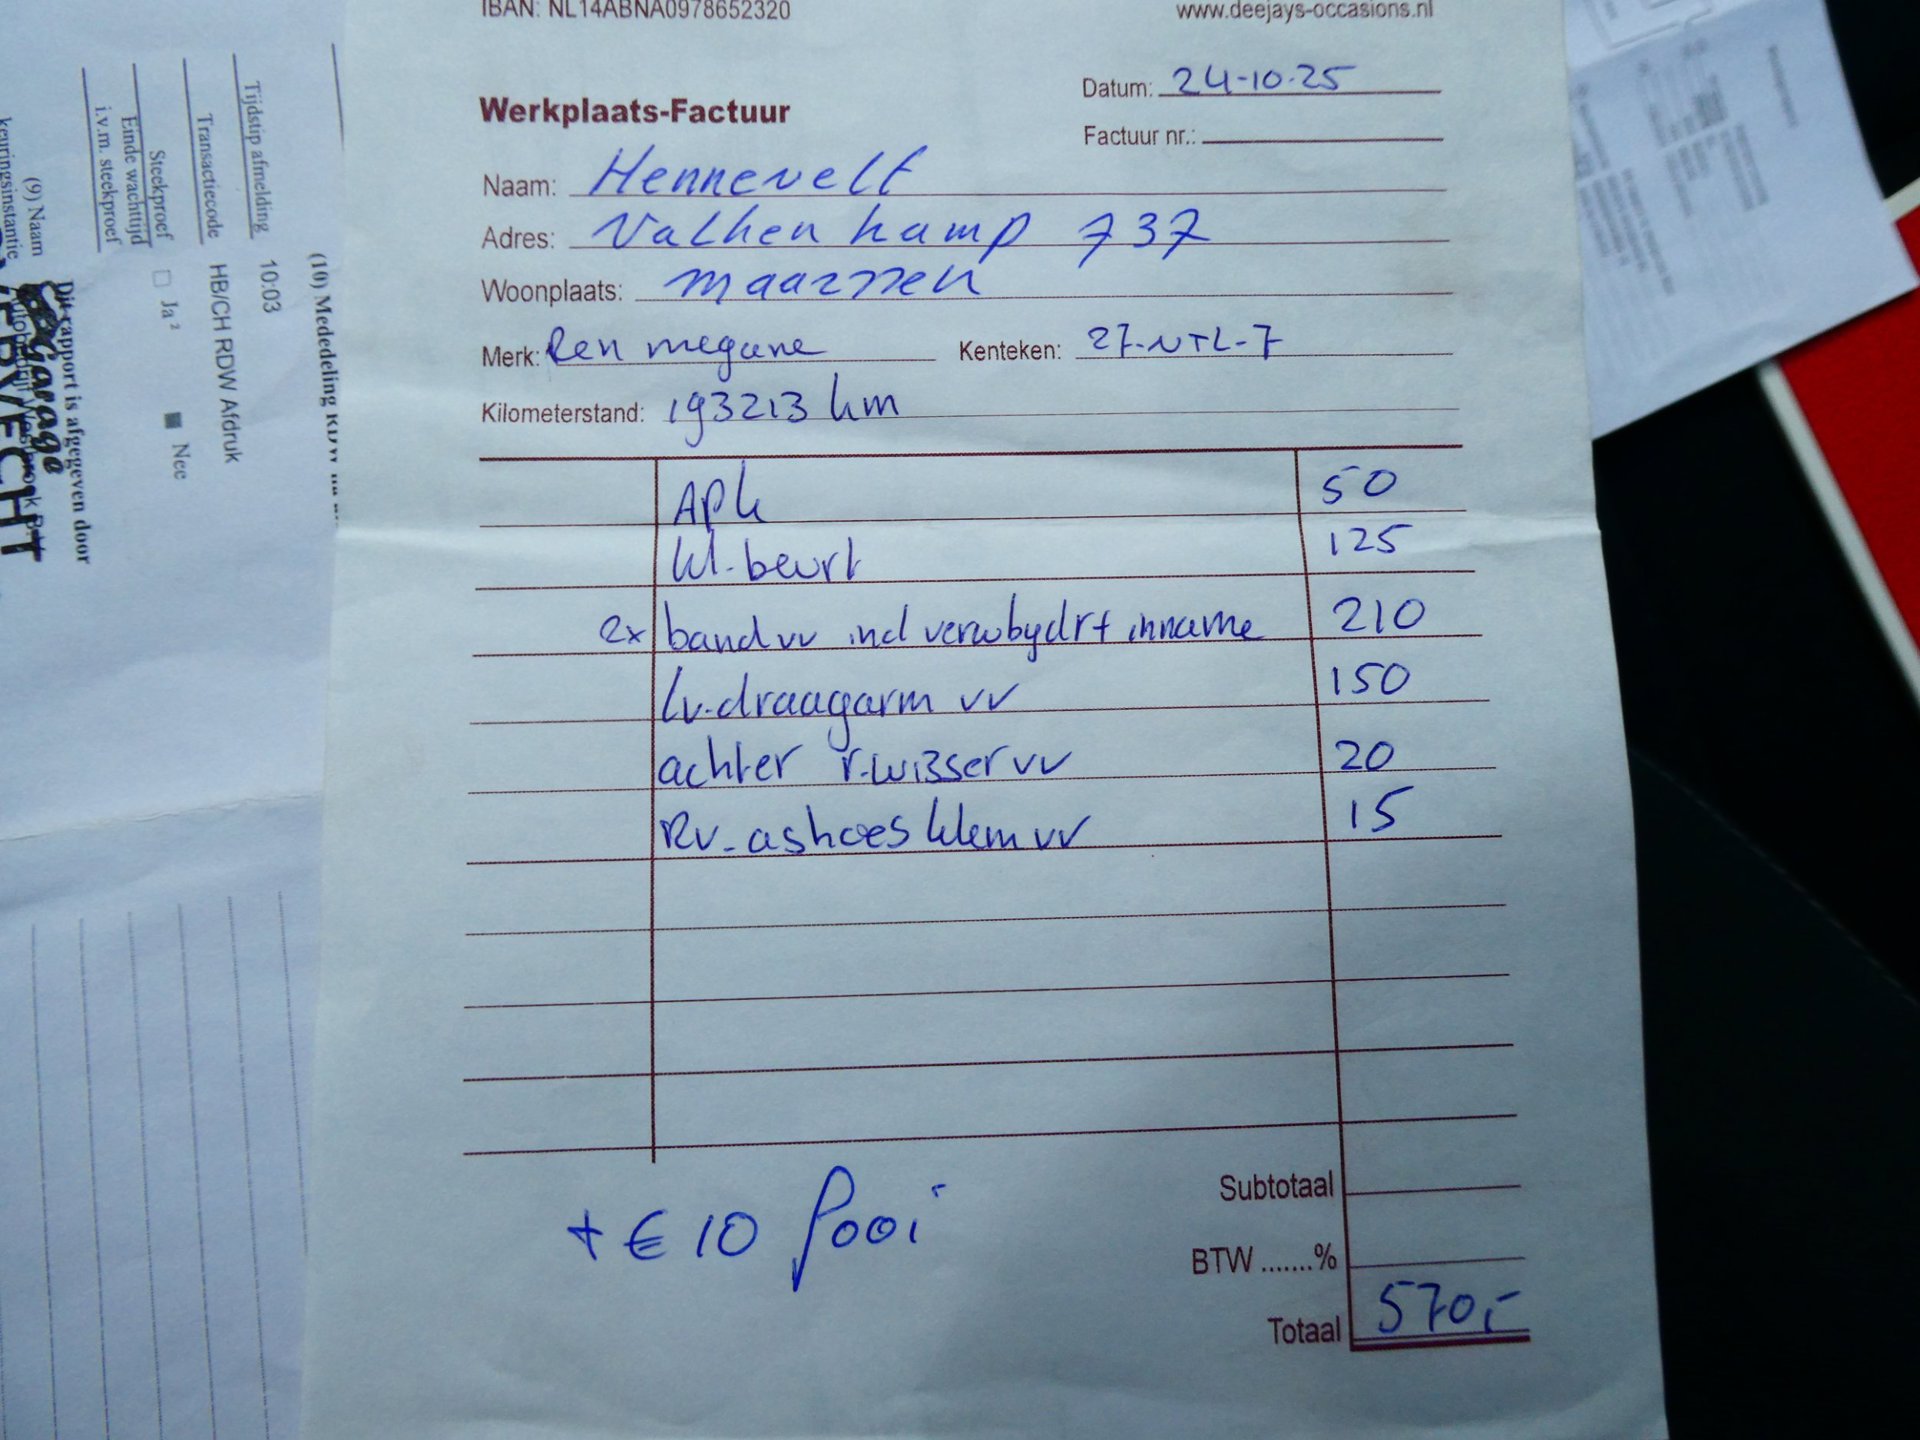 IBAN: NL14ABNA0978652320
www.deejays-occasions.nl
Werkplaats-Factuur
Datum: 24-10-25
Factuur nr.:
Naam: Hennevelt
Adres: Valkenkamp 737
Woonplaats: maarssen
Merk: Ren megane Kenteken: 27-NTL-7
Kilometerstand: 193213 km
APK 50
kl. beurt 125
2x band vv incl verwbydrt inname 210
Lv. draagarm vv 150
achter r.wisser vv 20
Rv. ashoes klem vv 15
+ € 10 fooi
Subtotaal
BTW .......%
Totaal 570,-
(10) Mededeling
Tijdstip afmelding 10:03
Transactiecode HB/CH RDW Afdruk
Steekproef Ja ² Nee
Einde wachttijd
i.v.m. steekproef
Dit rapport is afgegeven door
(9) Naam
keuringsinstantie
Garage